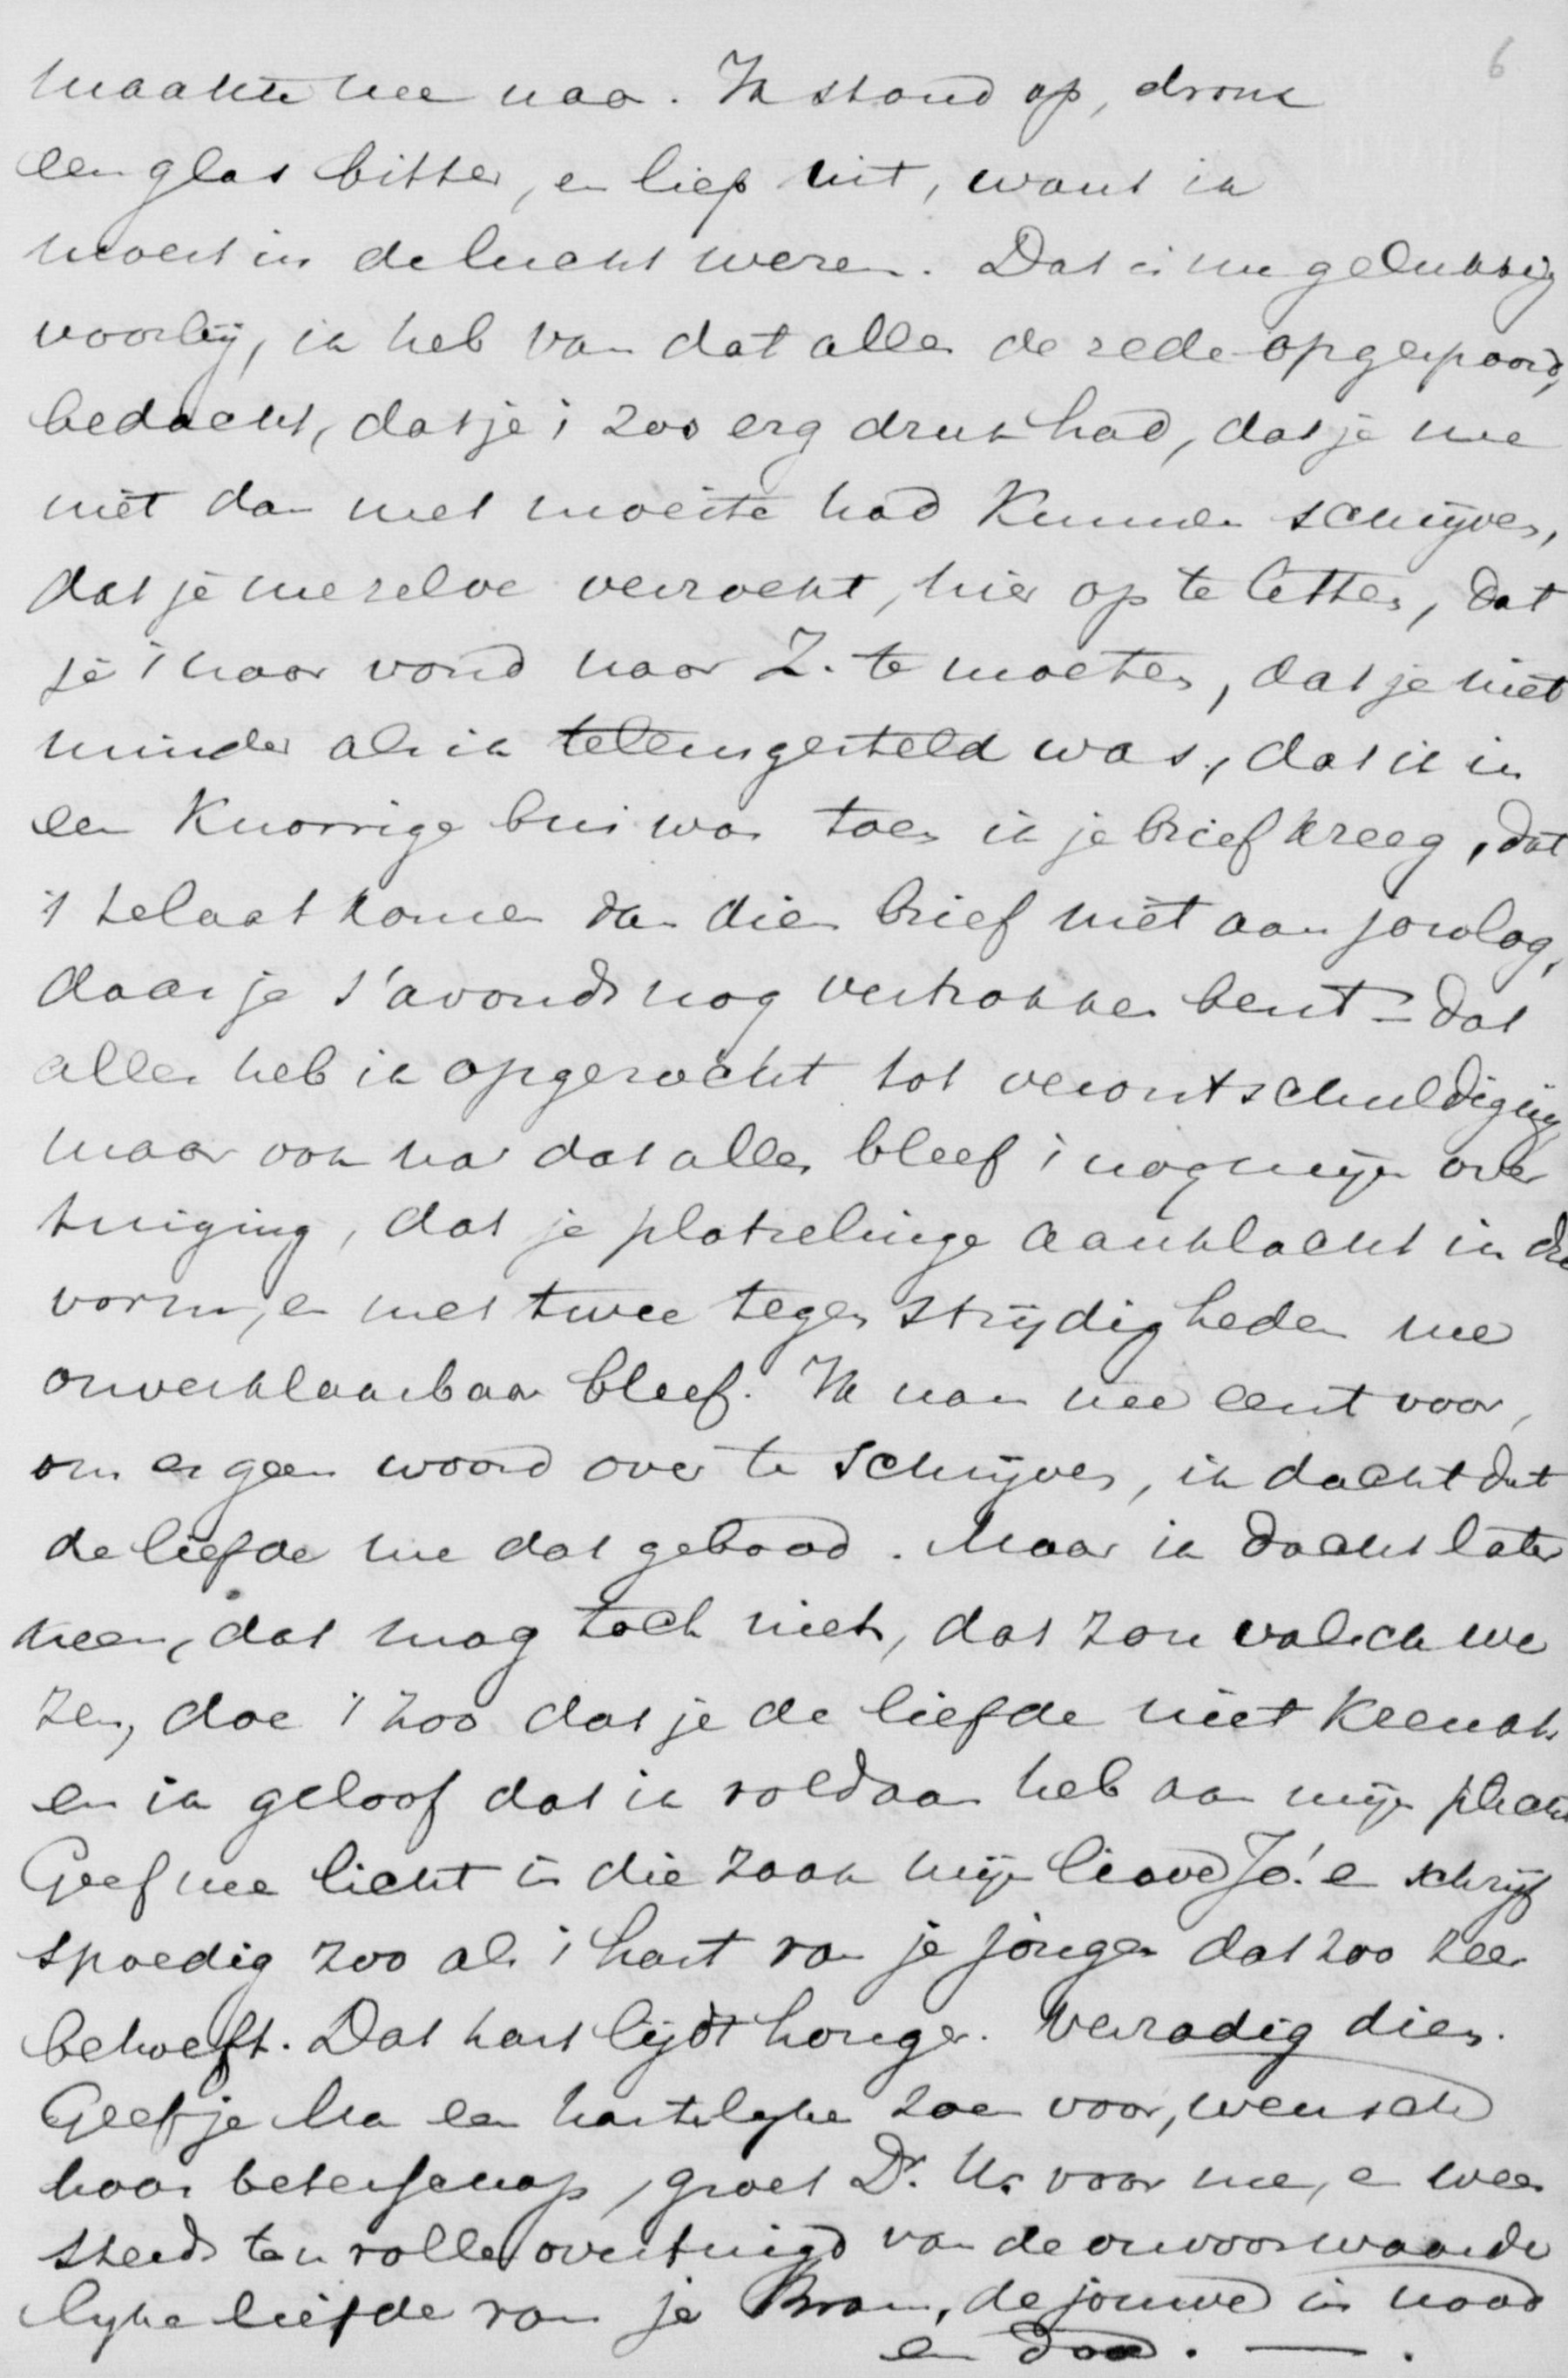 6
maakte me naar. Ik stond op, dronk
een glas bitter, en liep uit, want ik
moest in de lucht wezen. Dat is nu gelukkig
voorbij, ik heb van dat alles de rede opgespoord,
bedacht, dat je 't zoo erg druk had, dat je me
niet dan met moeite had kunnen schrijven,
dat je me zelve verzocht, hier op te letten, dat
je 't naar vond naar Z. te moeten, dat je niet
minder als ik teleurgesteld was, dat ik in
een knorrige bui was toen ik je brief kreeg, dat
't te laat komen van dien brief niet aan jou lag,
daar je s'avonds nog vertrokken bent – dat
alles heb ik opgezocht tot verontschuldiging
maar ook na dat alles bleef 't nog mijn over
tuiging, dat je plotselinge aanklacht in die
vorm, en met twee tegenstrijdigheden me
onverklaarbaar bleef. Ik nam me eerst voor,
om er geen woord over te schrijven, ik dacht dat
de liefde me dat gebood. Maar ik dacht later
neen, dat mag toch niet, dat zou valsch we
zen, doe 't zoo dat je de liefde niet krenkt
en ik geloof dat ik voldaan heb aan mijn plicht
Geef me licht in die zaak mijn lieve Jo! en schrijf
spoedig zoo als 't hart van je jongen dat zoo zeer
behoeft. Dat hart lijdt honger. Verzadig dien.
Geef je Ma een hartelijke zoen voor, wensch
haar beterschap, groet Dr. U. voor me, en wees
steeds ten volle overtuigd van de onvoorwaarde
lijke liefde van je Bram, de jouwe in nood
en dood. — .